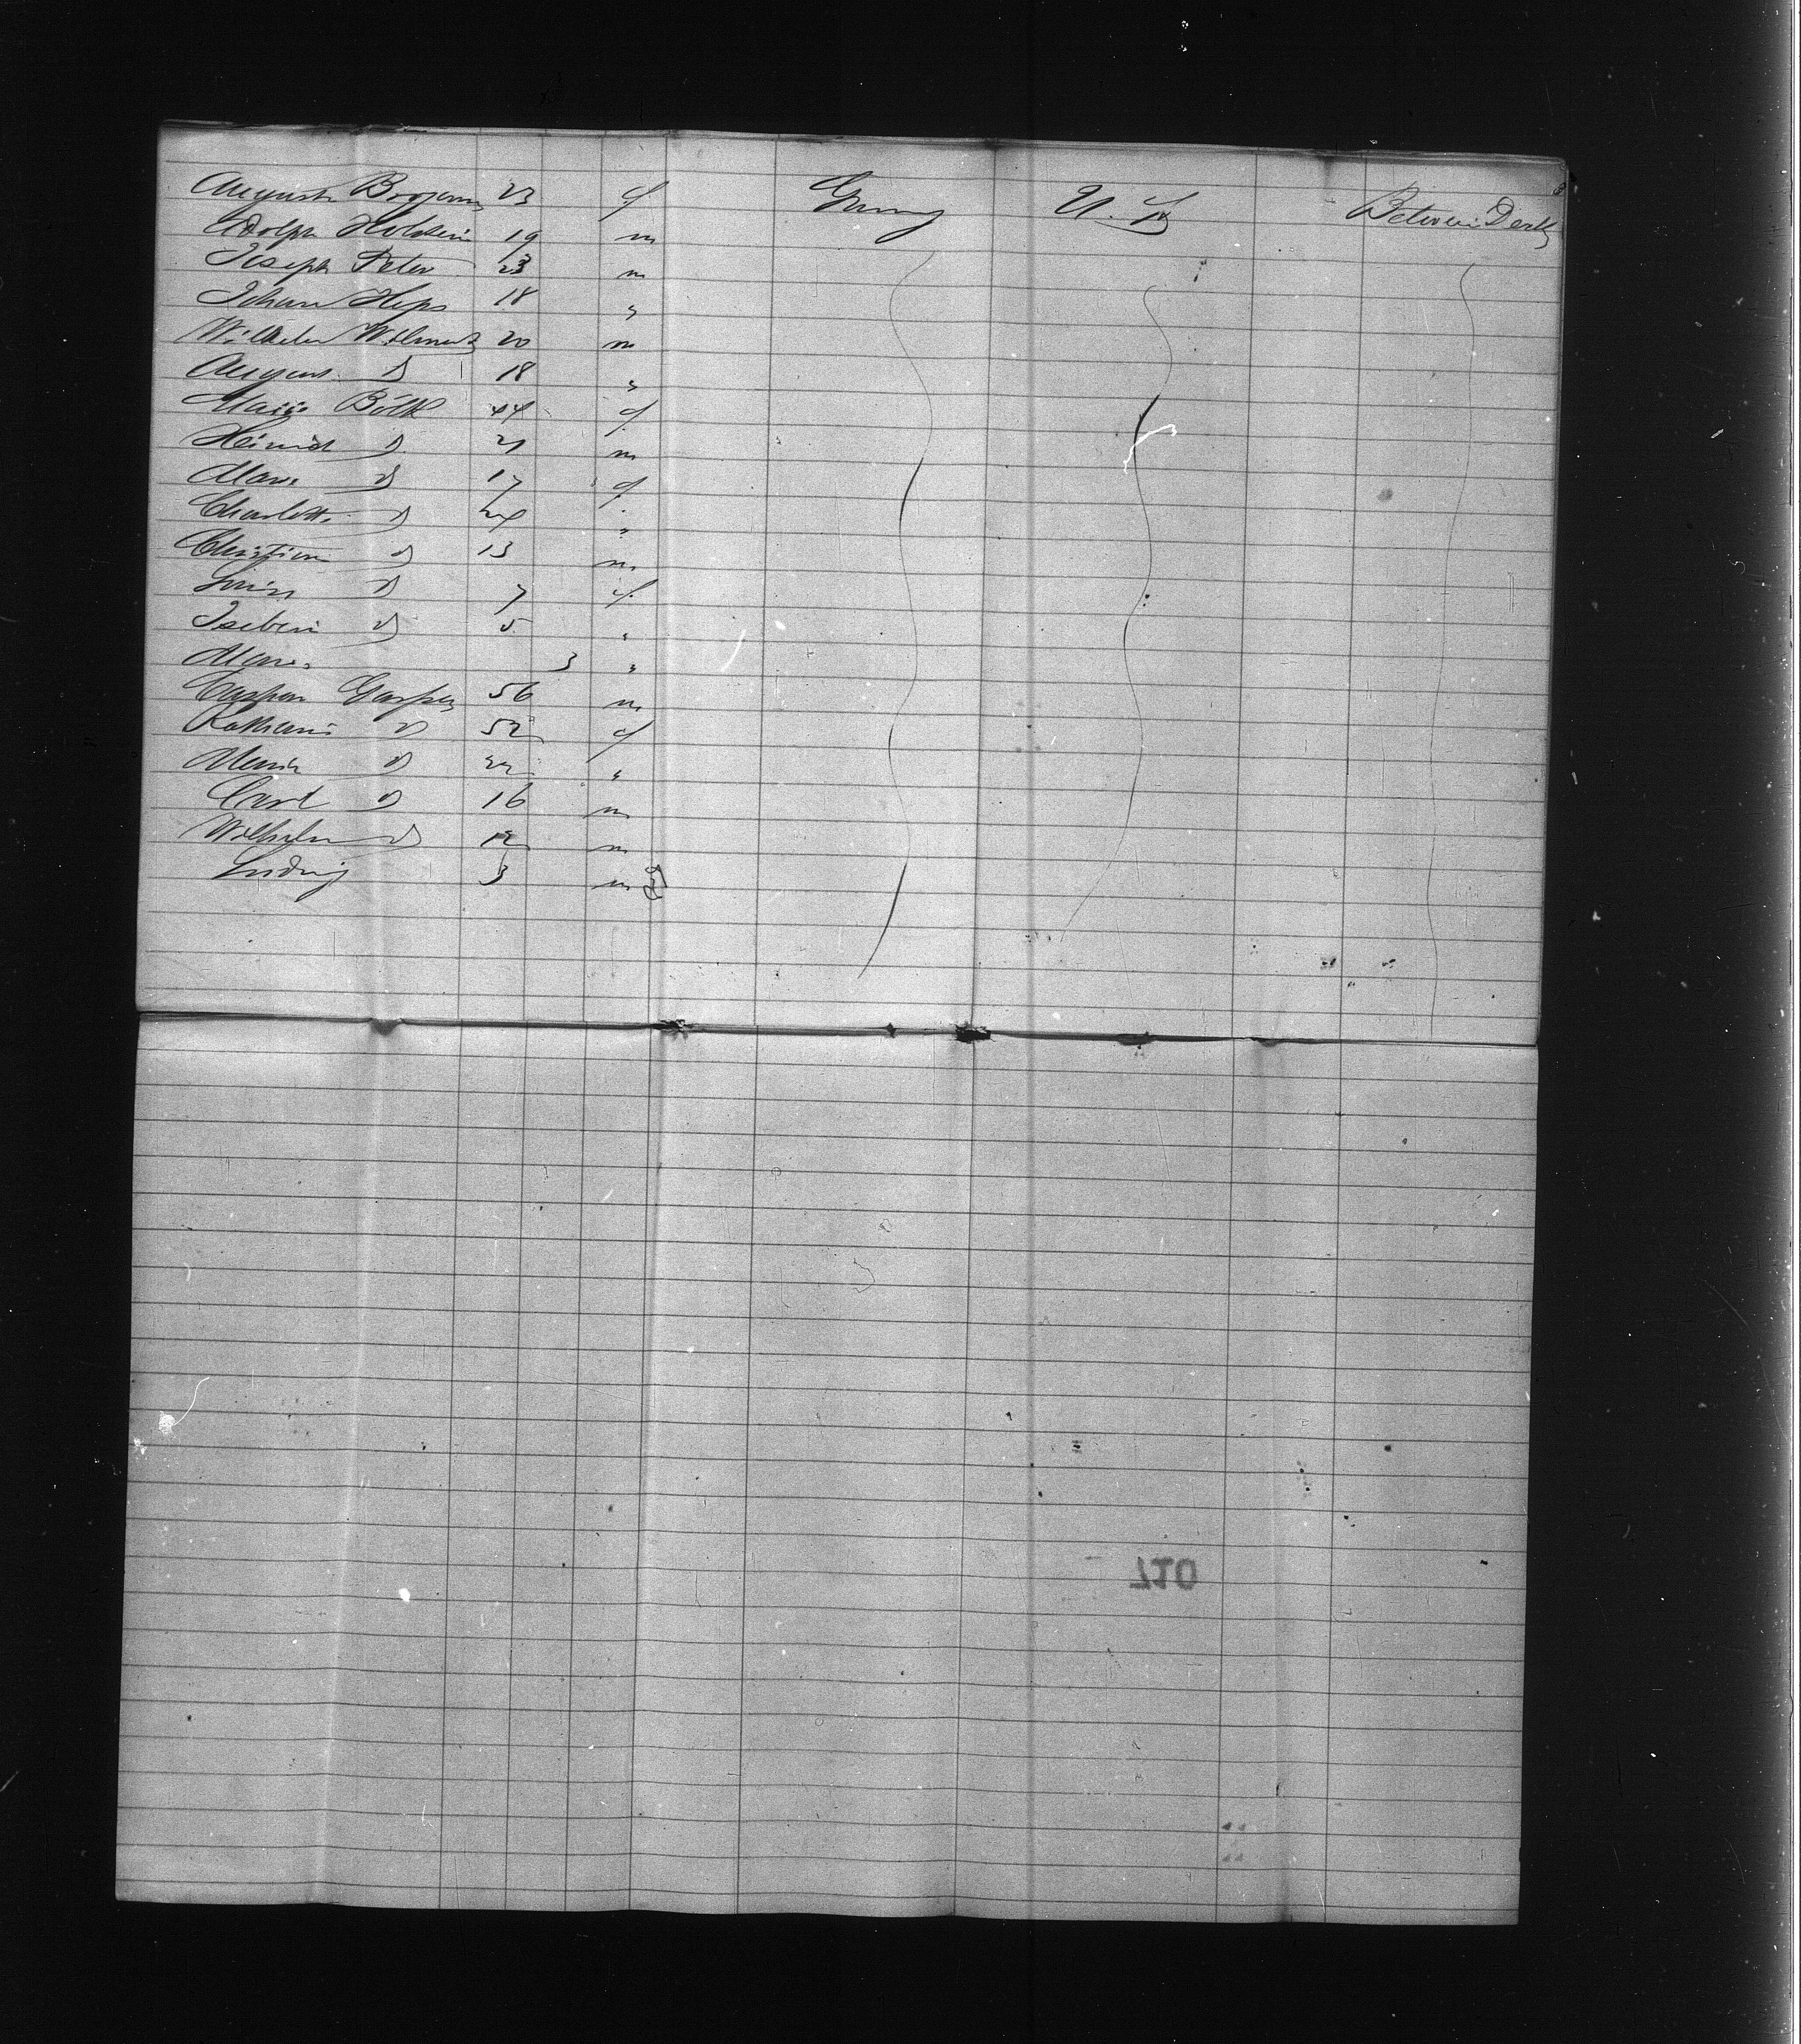 Auguste 23 f Germy U. S. Between Decks
Adolph Holstein 19 m
Joseph Peter 23 m
Johann Heps 18 "
Wilhelm Wilmert 20 m
August D 18 "
Marie Bölk 44 f
Heinrich D 21 m
Marie D 17 f
Charlotte D 24 "
Christian D 13 m
Louise D 7 f
D 5 "
Marie 3 "
Caspar Gasper 56 m
Katharine D 52 f
Maria D 22 "
Carl D 16 m
Wilhelm D 12 m
Ludwig 3 m
710